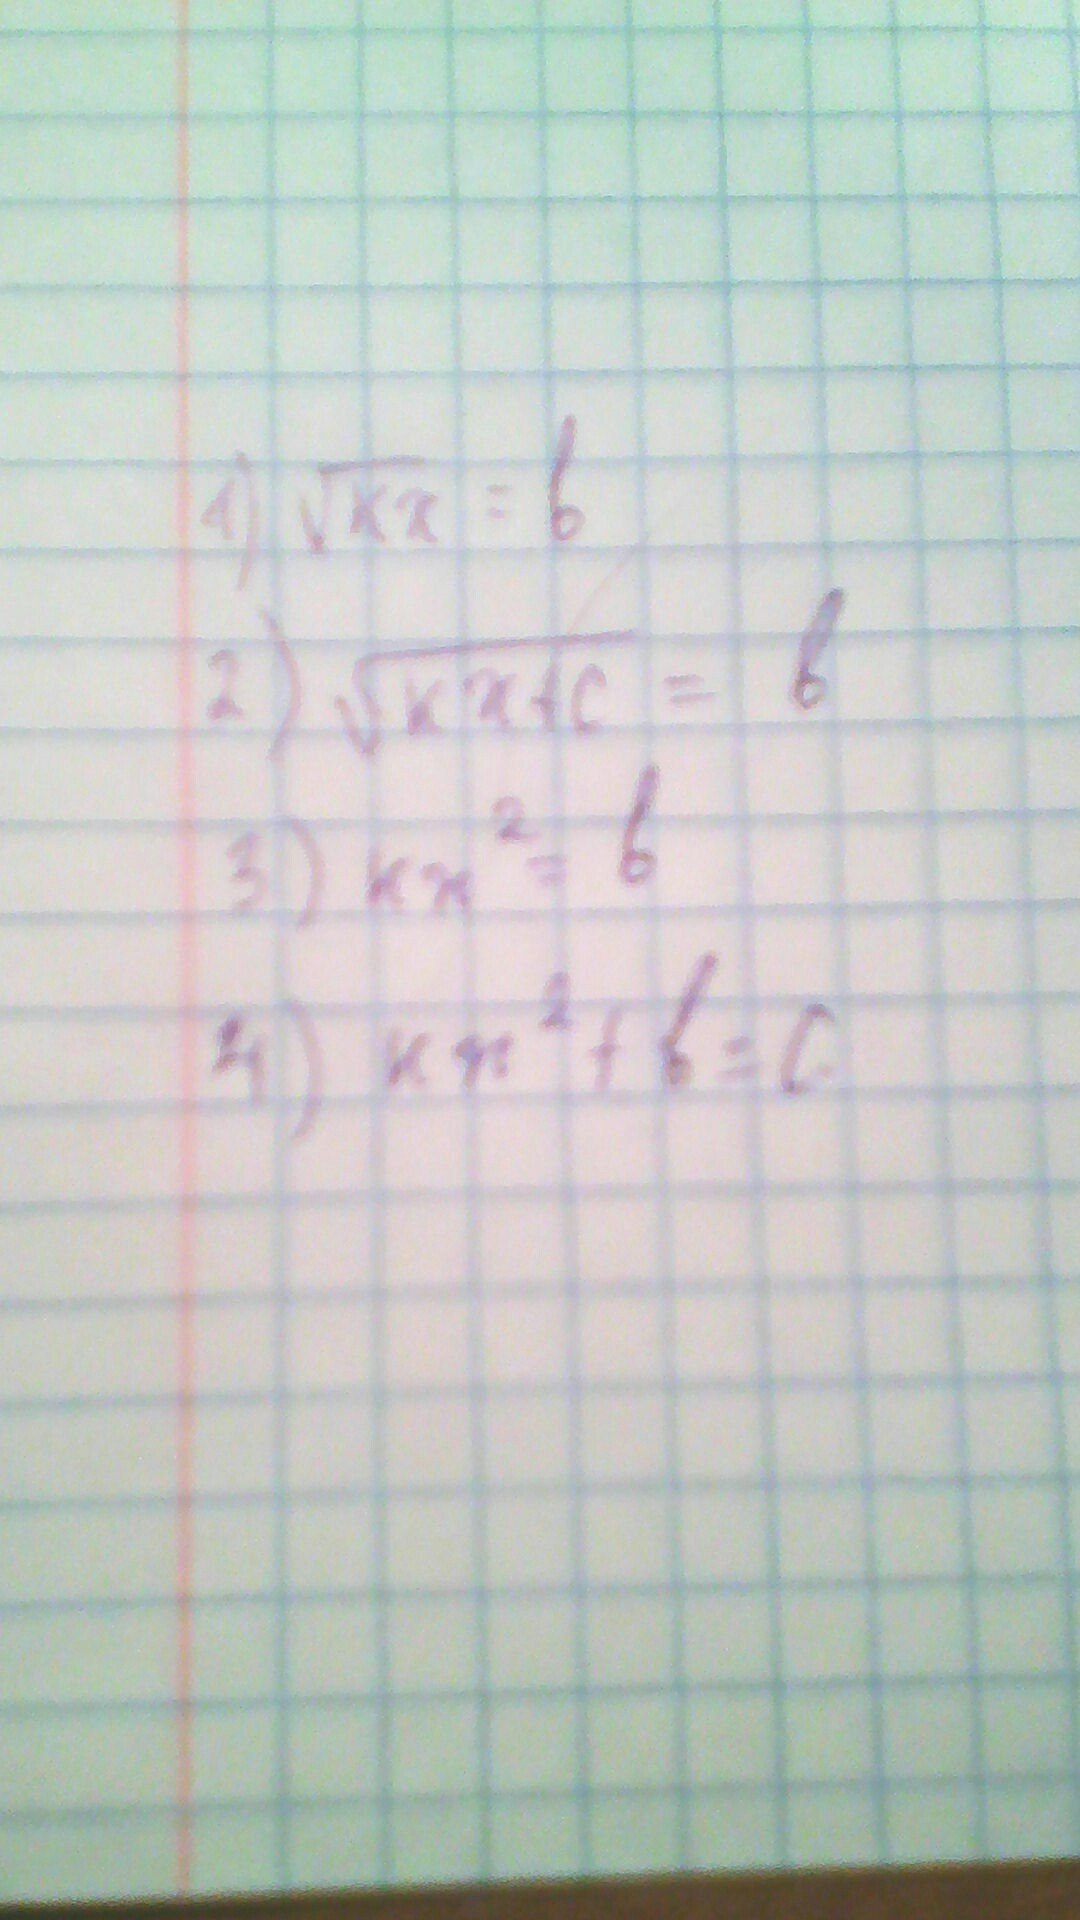 1) √kx = b
2) √kx+c = b
3) kx² = b
4) kx² + b = c